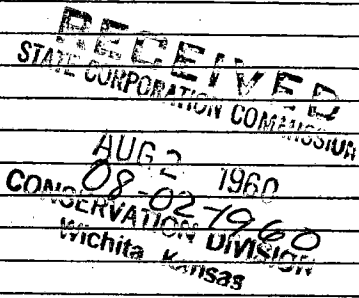 RECEIVED
STATE CORPORATION COMMISSION
AUG 2 1960
08-02-1960
CONSERVATION DIVISION
Wichita, Kansas